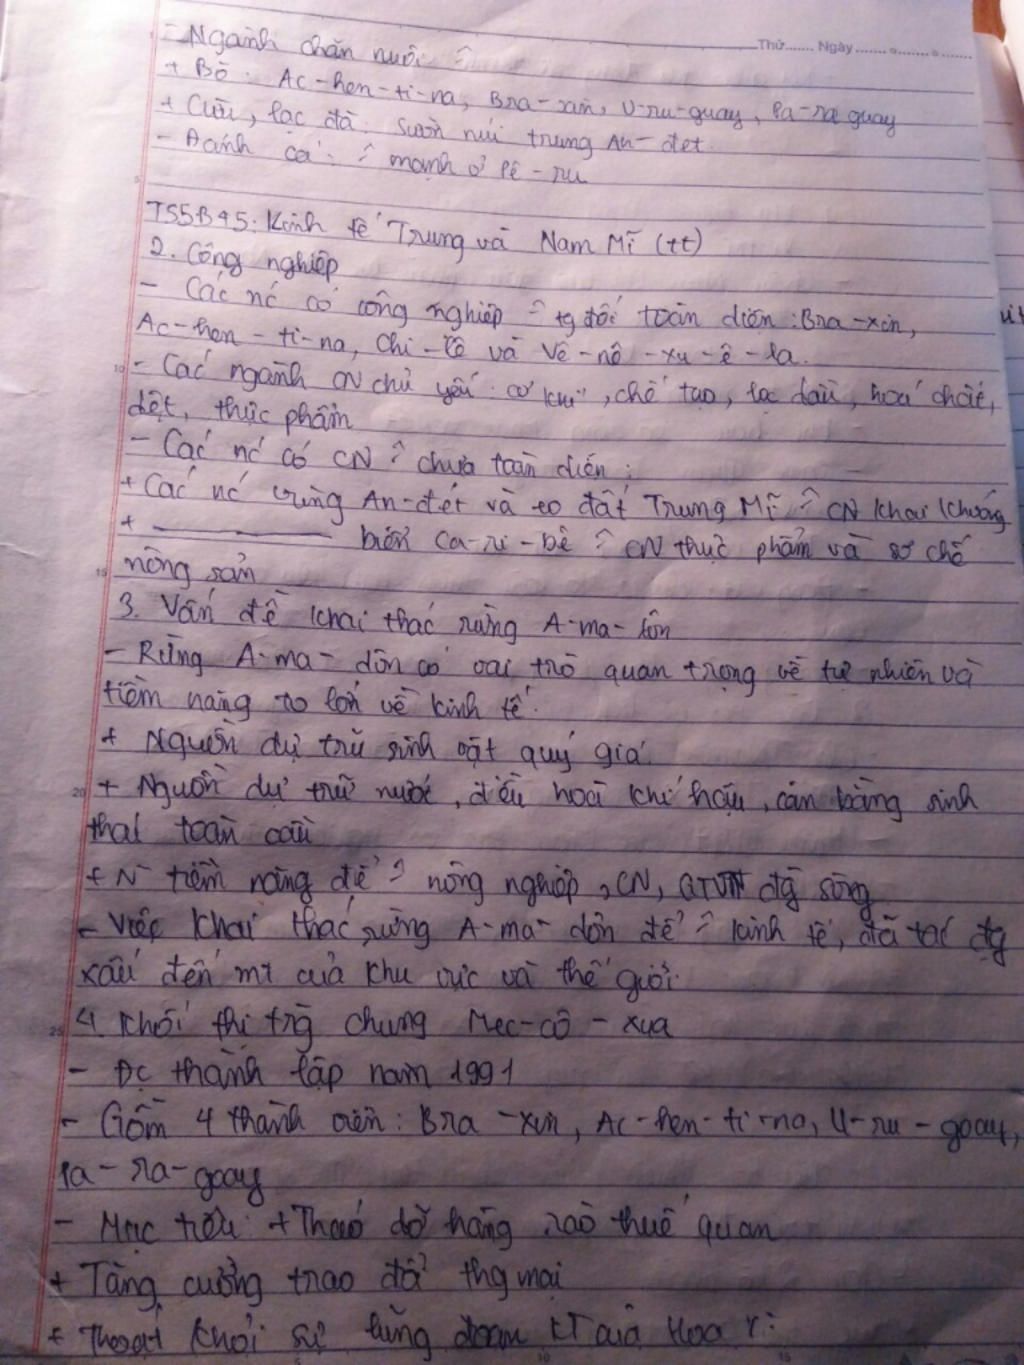 Thứ....... Ngày ....... o....... o .......
- Ngành chăn nuôi ^?
+ Bò : Ac-hen-ti-na, Bra-xin, U-ru-guay, Pa-ra guay
+ Cừu, lạc đà: sườn núi trung An-đet
- Đánh cá : ^? mạnh ở Pê-ru
5
TS5B45: Kinh tế Trung và Nam Mĩ (tt)
2. Công nghiệp
- Các nc có công nghiệp ^? tg đối toàn diện : Bra-xin,
Ac-hen-ti-na, Chi-lê và Vê-nê-xu-ê-la.
10 - Các ngành CN chủ yếu : cơ khí, chế tạo, lọc dầu, hoá chất,
dệt, thực phẩm
- Các nc có CN ^? chưa toàn diện :
+ Các nc vùng An-đét và eo đất Trung Mĩ ^? CN khai khoáng
+ ———— biển Ca-ri-bê ^? CN thực phẩm và sơ chế
15 nông sản
3. Vấn đề khai thác rừng A-ma-dôn
- Rừng A-ma-dôn có vai trò quan trọng về tự nhiên và
tiềm năng to lớn về kinh tế.
+ Nguồn dự trữ sinh vật quý giá.
20 + Nguồn dự trữ nước, điều hoà khí hậu, cân bằng sinh
thái toàn cầu
+ N` tiềm năng để ^? nông nghiệp, CN, GTVT đg sông
- Việc khai thác rừng A-ma-dôn để ^? kinh tế, đã tác đg
xấu đến mt của khu vực và thế giới.
25 4 Khối thị trg chung Mec-cô-xua
- Đc thành lập năm 1991
- Gồm 4 thành viên : Bra-xin, Ac-hen-ti-na, U-ru-goay,
Pa-ra-goay
- Mục tiêu : + Tháo dỡ hàng rào thuế quan
+ Tăng cường trao đổi thg mại
+ Thoát khỏi sự lũng đoạn KT của Hoa Kì